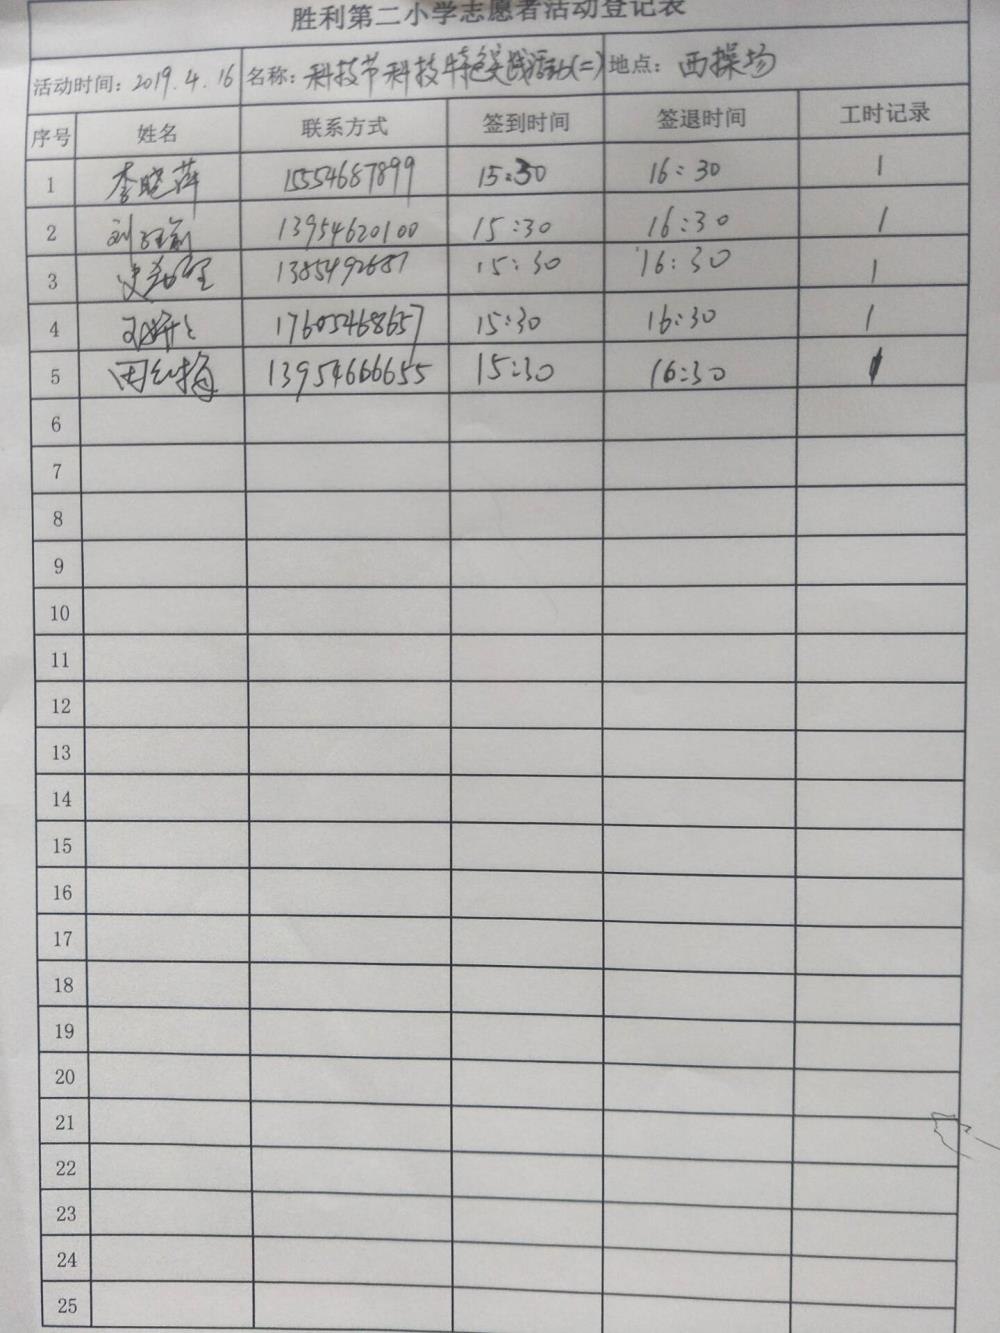 胜利第二小学志愿者活动登记表
活动时间：2019.4.16 名称：科技节科技特色实践活动(二) 地点：西操场
序号 姓名 联系方式 签到时间 签退时间 工时记录
1 李晓萍 15554687899 15:30 16:30 1
2 13954620100 15:30 16:30 1
3 1385492687 15:30 16:30 1
4 17605468657 15:30 16:30 1
5 田红梅 13954666655 15:30 16:30 1
6
7
8
9
10
11
12
13
14
15
16
17
18
19
20
21
22
23
24
25